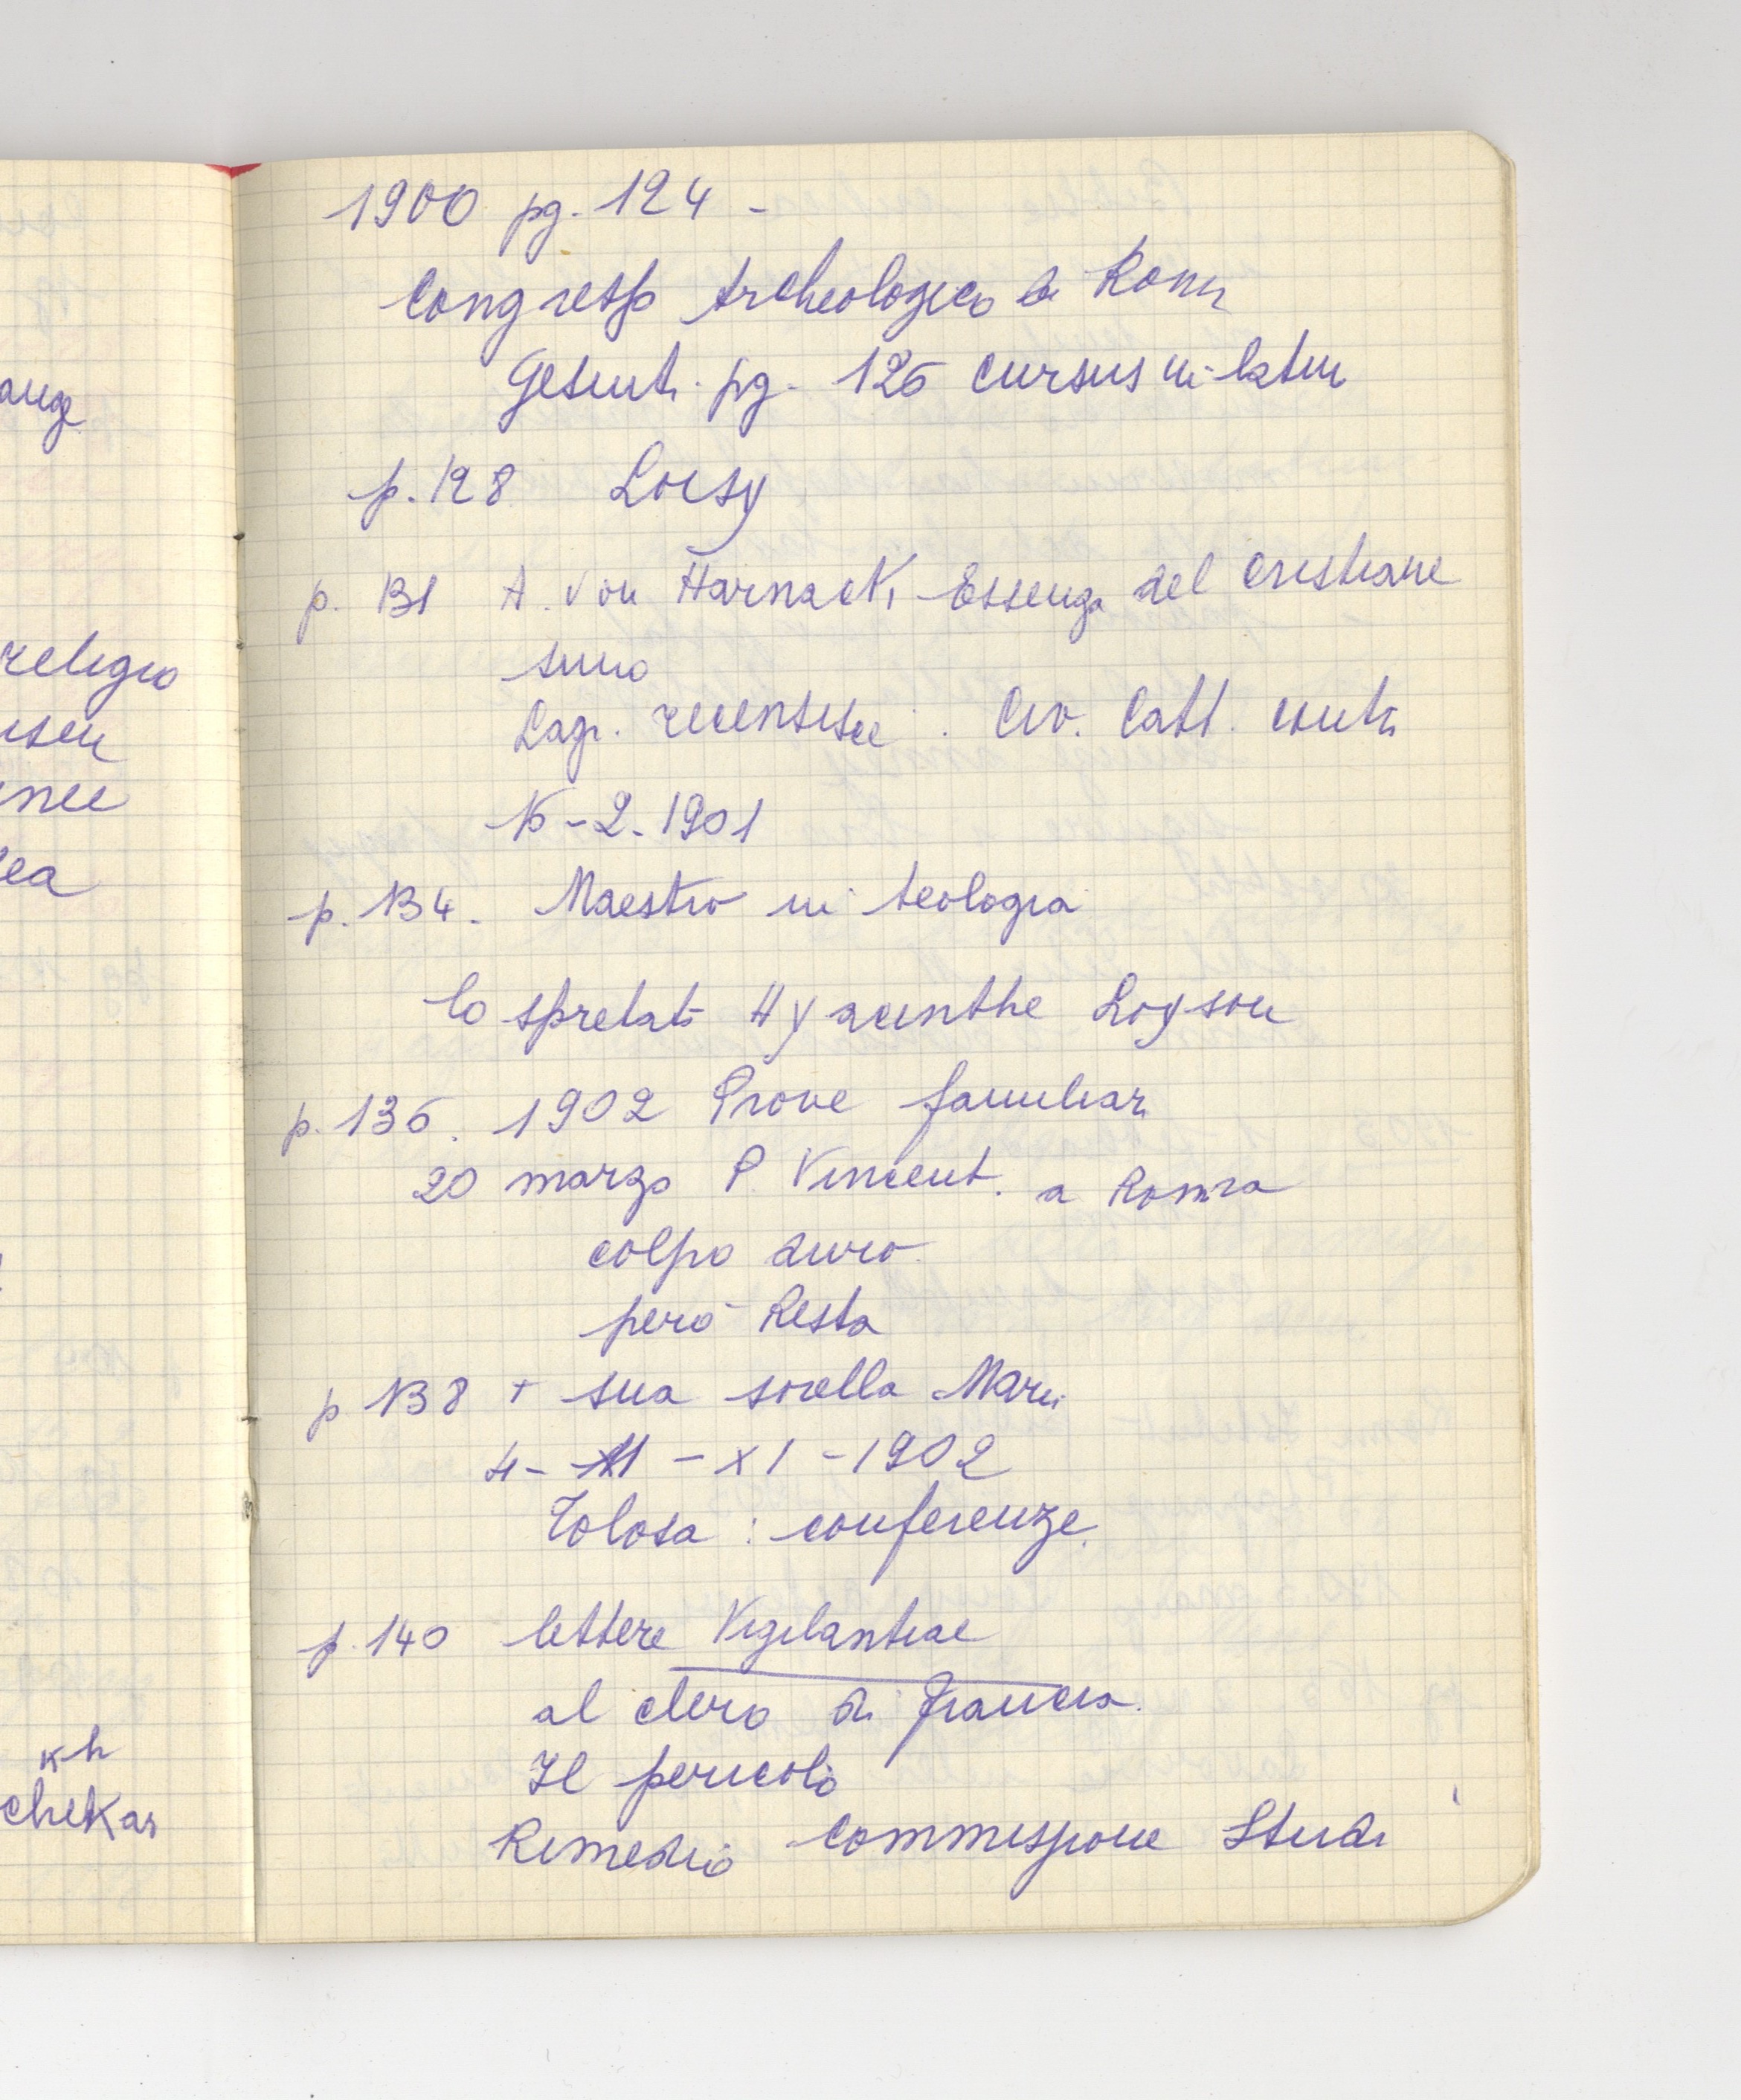 1900 pg. 124 -
Congresso Archeologico di Roma
Gesuiti. pg. 126 cursus in latin
p. 128 Loisy
p. 131 A. von Harnack, Essenza del Cristiane
simo
Lagr. recensisce. Civ. Catt. contro
16-2-1901
p. 134. Maestro in teologia
lo spretato Hyacinthe Loyson
p. 136. 1902 Prove familiari
20 marzo P. Vincent. a Roma
colpo duro.
però Resta
p 138 + sua sorella Marie
4 - - XI - 1902
Tolosa : conferenze.
p. 140 lettere Vigilantiae
al clero di Francia.
Il pericolo
Rimedio Commissione Studi
auge
religio
isen
nee
ea
kh
chekar